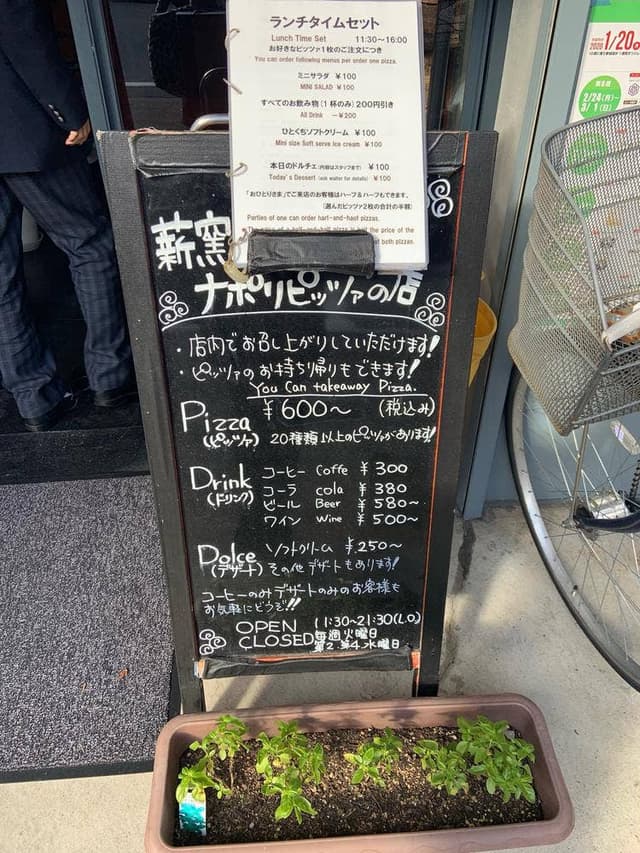 ランチタイムセット
Lunch Time Set 11:30~16:00
お好きなピッツァ1枚のご注文につき
You can order following menus per order one pizza.
ミニサラダ ¥100
MINI SALAD ¥100
すべてのお飲み物(1杯のみ)200円引き
All Drink -¥200
ひとくちソフトクリーム ¥100
Mini size Soft serve Ice cream ¥100
本日のドルチェ(内容はスタッフまで) ¥100
Today's Dessert (ask waiter for details) ¥100
「おひとりさま」でご来店のお客様はハーフ&ハーフもできます。
(選んだピッツァ2枚の合計の半額)
Parties of one can order harf-and-haof pizzas.
the price of the
of both pizzas.
薪窯
ナポリピッツァの店
・店内でお召し上がりしていただけます!
・ピッツァのお持ち帰りもできます!
You Can takeaway Pizza.
Pizza ¥600~ (税込み)
(ピッツァ) 20種類以上のピッツァがあります!
Drink
(ドリンク)
コーヒー Coffe ¥300
コーラ cola ¥380
ビール Beer ¥580~
ワイン Wine ¥500~
Dolce ソフトクリーム ¥250~
(デザート) その他デザートもあります!
コーヒーのみデザートのみのお客様も
お気軽にどうぞ!!
OPEN 11:30~21:30(L.O)
CLOSED 毎週火曜日
第2.第4水曜日
2020 1/20
2/24(月)~
3/1(日)